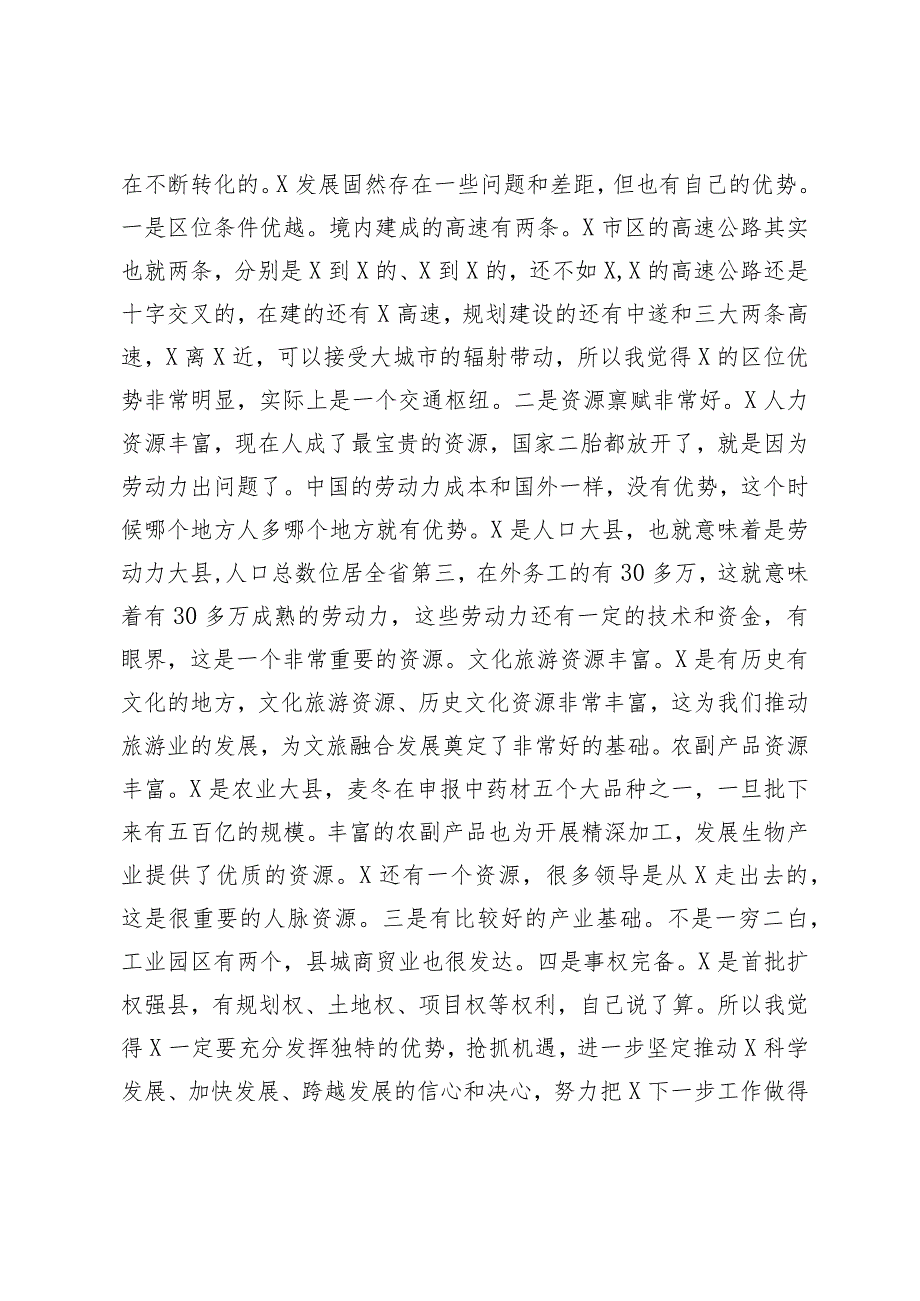 在不断转化的。X 发展固然存在一些问题和差距，但也有自己的优势。
一是区位条件优越。境内建成的高速有两条。X 市区的高速公路其实
也就两条，分别是 X 到 X 的、X 到 X 的，还不如 X,X 的高速公路还是
十字交叉的，在建的还有 X 高速，规划建设的还有中遂和三大两条高
速，X 离 X 近，可以接受大城市的辐射带动，所以我觉得 X 的区位优
势非常明显，实际上是一个交通枢纽。二是资源禀赋非常好。X 人力
资源丰富，现在人成了最宝贵的资源，国家二胎都放开了，就是因为
劳动力出问题了。中国的劳动力成本和国外一样，没有优势，这个时
候哪个地方人多哪个地方就有优势。X 是人口大县，也就意味着是劳
动力大县,人口总数位居全省第三，在外务工的有 30 多万，这就意味
着有 30 多万成熟的劳动力，这些劳动力还有一定的技术和资金，有
眼界，这是一个非常重要的资源。文化旅游资源丰富。X 是有历史有
文化的地方，文化旅游资源、历史文化资源非常丰富，这为我们推动
旅游业的发展，为文旅融合发展奠定了非常好的基础。农副产品资源
丰富。X 是农业大县，麦冬在申报中药材五个大品种之一，一旦批下
来有五百亿的规模。丰富的农副产品也为开展精深加工，发展生物产
业提供了优质的资源。X 还有一个资源，很多领导是从 X 走出去的，
这是很重要的人脉资源。三是有比较好的产业基础。不是一穷二白，
工业园区有两个，县城商贸业也很发达。四是事权完备。X 是首批扩
权强县，有规划权、土地权、项目权等权利，自己说了算。所以我觉
得 X 一定要充分发挥独特的优势，抢抓机遇，进一步坚定推动 X 科学
发展、加快发展、跨越发展的信心和决心，努力把 X 下一步工作做得